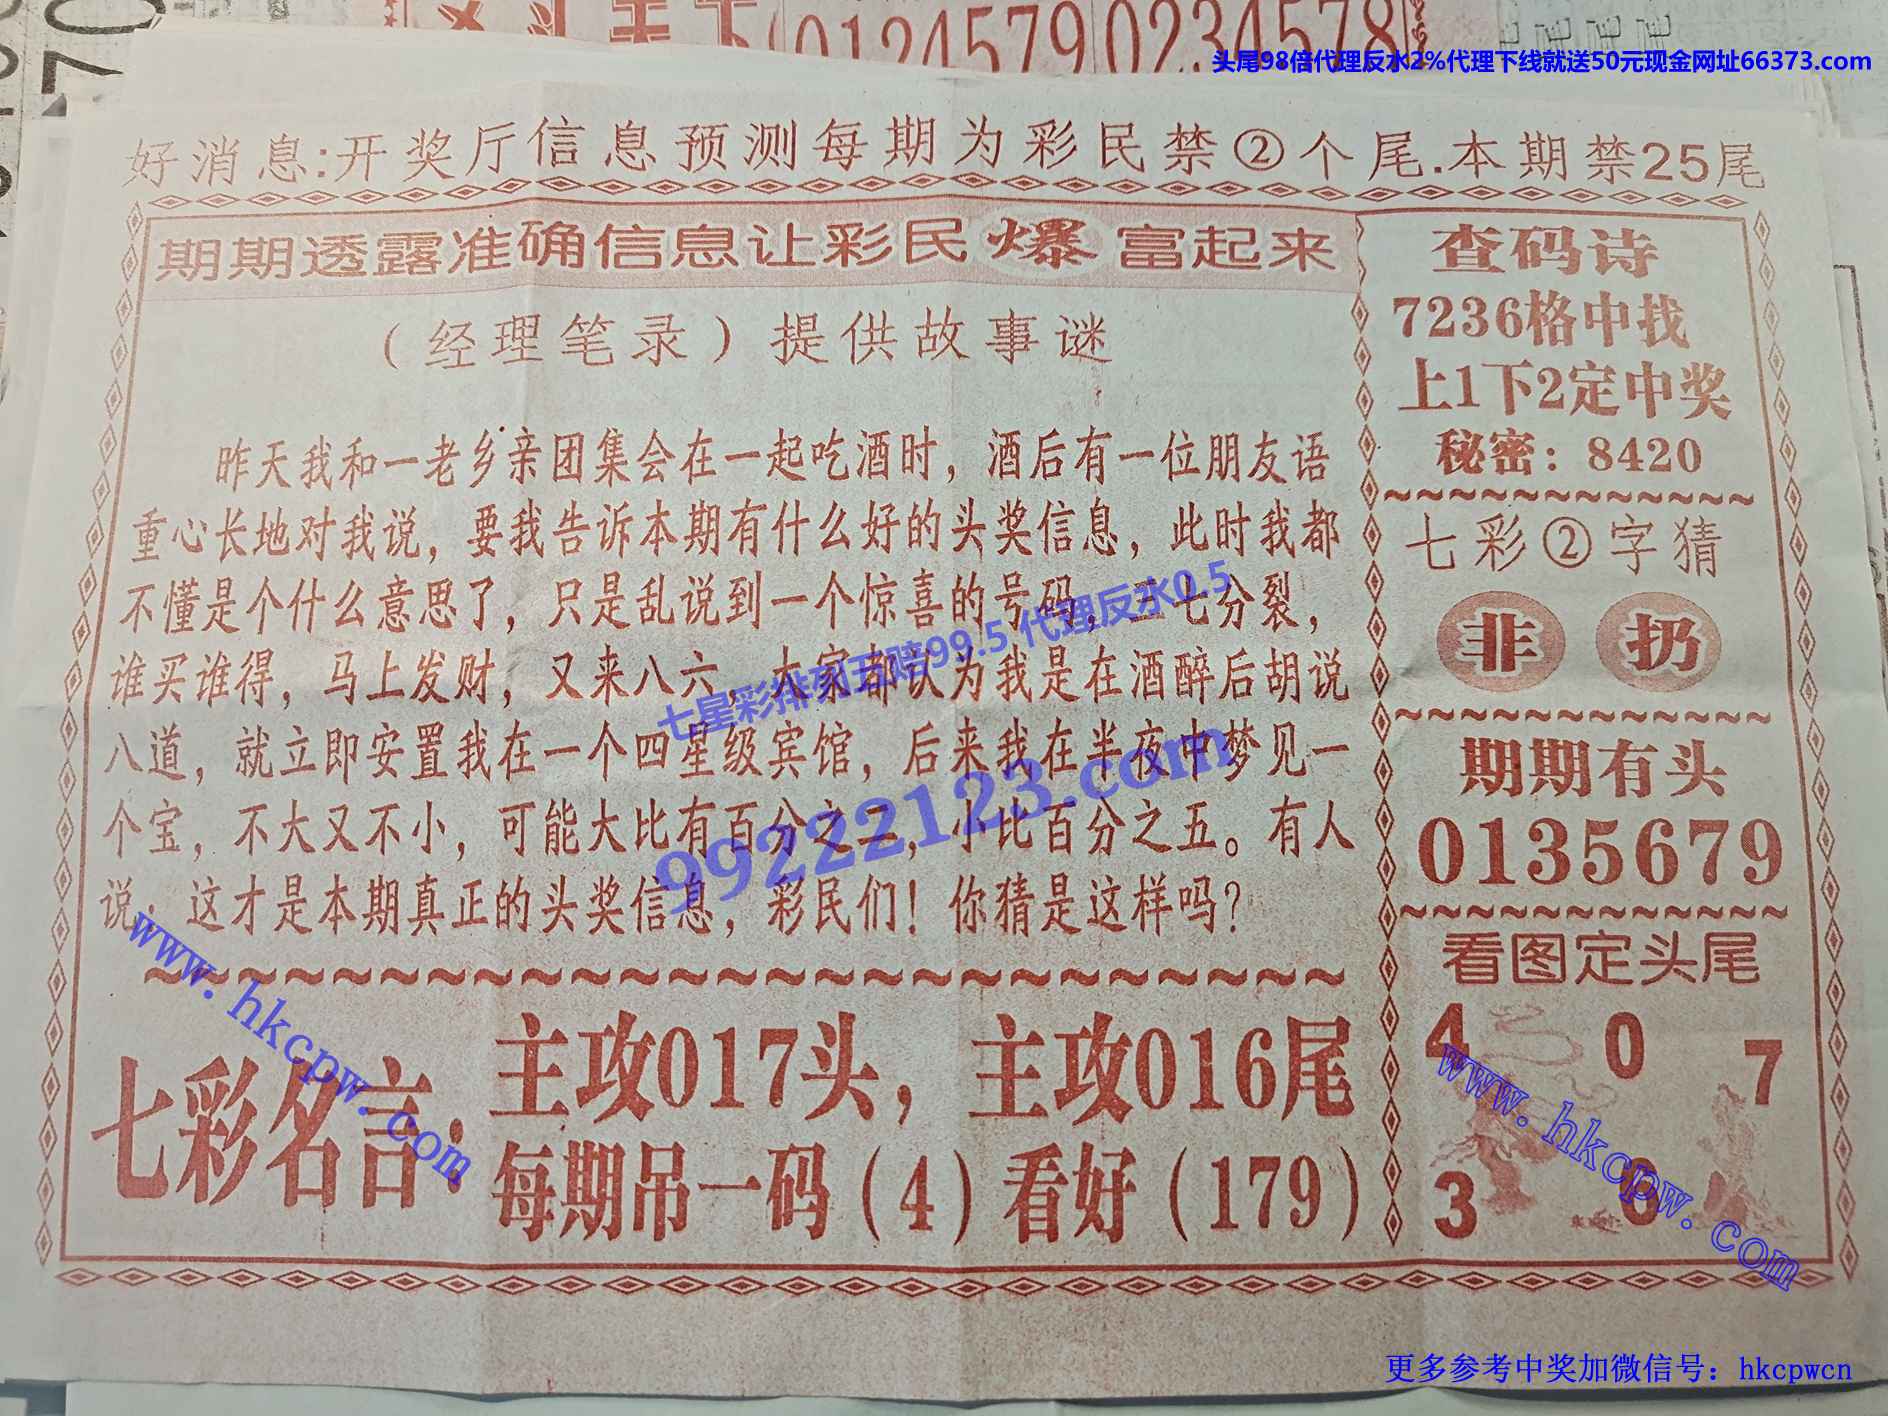 0124579
0234578
头尾98倍代理反水2%代理下线就送50元现金网址66373.com
好消息:开奖厅信息预测每期为彩民禁②个尾.本期禁25尾
期期透露准确信息让彩民爆富起来
（经理笔录）提供故事谜
昨天我和一老乡亲团集会在一起吃酒时，酒后有一位朋友语
重心长地对我说，要我告诉本期有什么好的头奖信息，此时我都
不懂是个什么意思了，只是乱说到一个惊喜的号码，二七分裂，
谁买谁得，马上发财，又来八六，大家都认为我是在酒醉后胡说
八道，就立即安置我在一个四星级宾馆，后来我在半夜中梦见一
个宝，不大又不小，可能大比有百分之二，小比百分之五。有人
说：这才是本期真正的头奖信息，彩民们！你猜是这样吗？
七彩名言：
主攻017头，主攻016尾
每期吊一码（4）看好（179）
查码诗
7236格中找
上1下2定中奖
秘密：8420
七彩②字猜
非 扔
期期有头
0135679
看图定头尾
4 0 7
3 6
七星彩排列五赔99.5 代理反水0.5
99222123.com
www.hkcpw.com
www.hkcpw.com
更多参考中奖加微信号：hkcpwcn